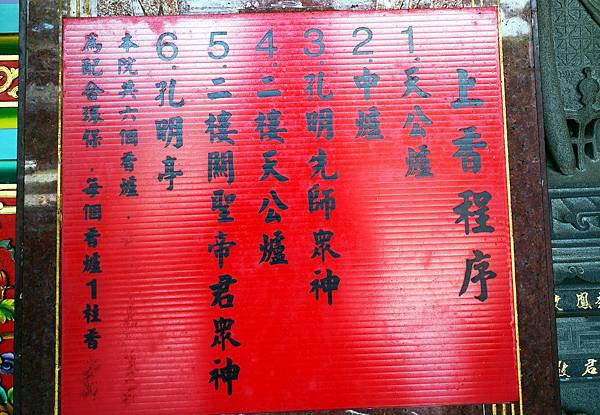 上香程序
1.天公爐
2.中爐
3.孔明先師眾神
4.二樓天公爐
5.二樓關聖帝君眾神
6.孔明亭
本院共六個香爐，
為配合環保，每個香爐1柱香